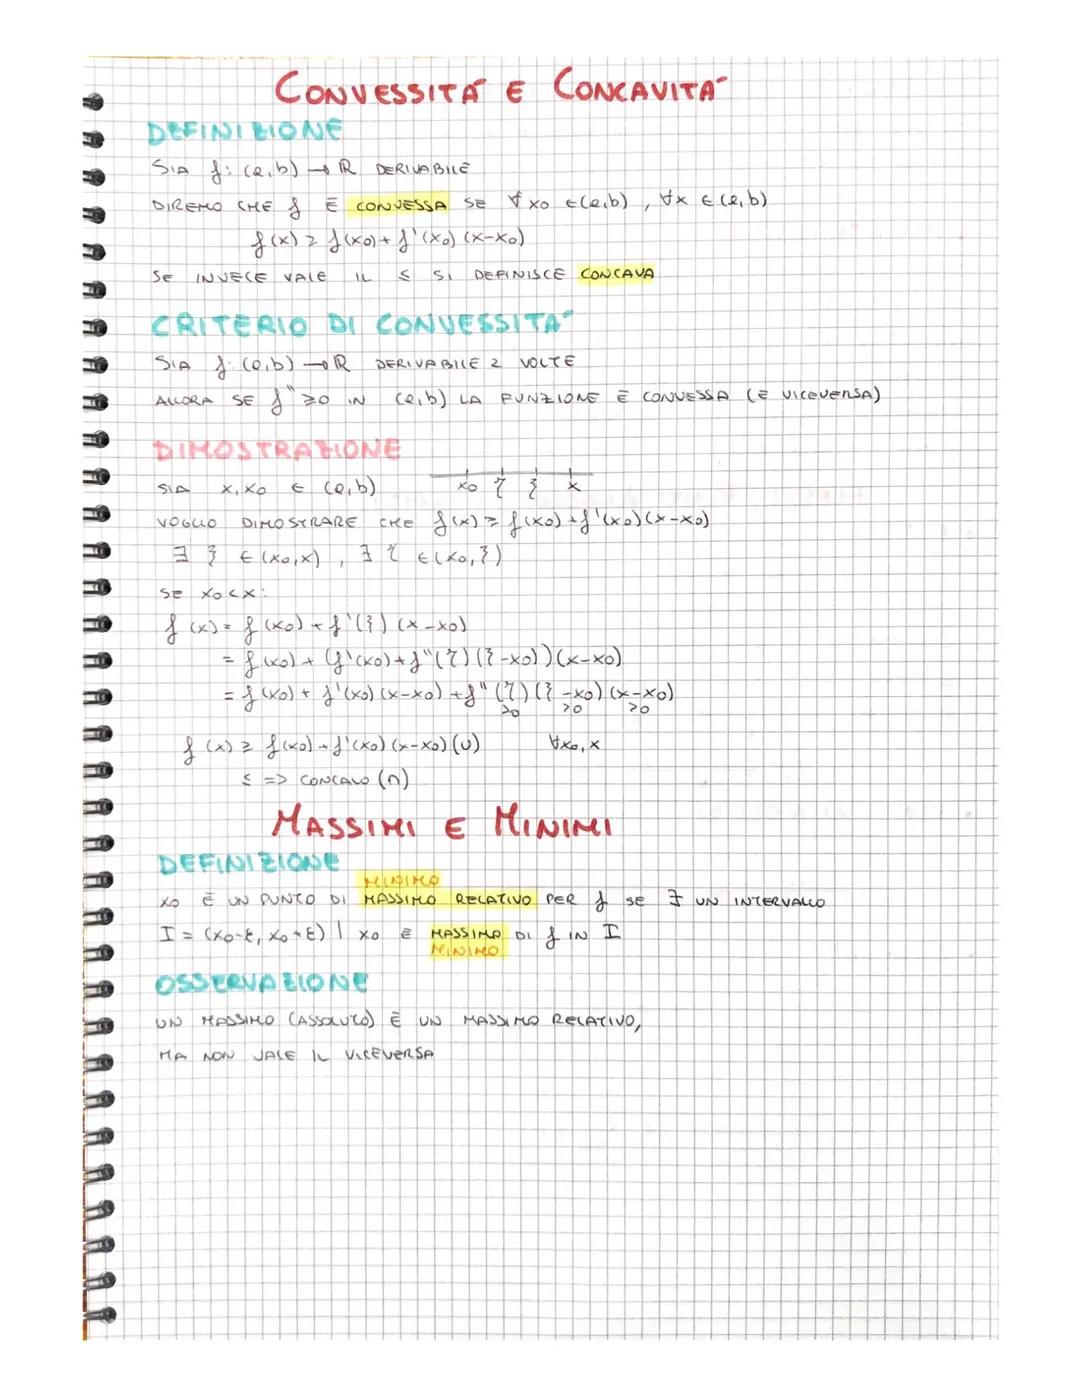 CONVESSITÀ E CONCAVITÀ
DEFINIZIONE
SIA f: (a,b) → ℝ DERIVABILE
DIREMO CHE f È CONVESSA SE ∀ x0 ∈ (a,b) , ∀x ∈ (a,b)
f(x) ≥ f(x0) + f'(x0) (x-x0)
SE INVECE VALE IL ≤ SI DEFINISCE CONCAVA
CRITERIO DI CONVESSITÀ
SIA f: (a,b) → ℝ DERIVABILE 2 VOLTE
ALLORA SE f'' ≥0 IN (a,b) LA FUNZIONE È CONVESSA (E VICEVERSA)
DIMOSTRAZIONE
SIA x, x0 ∈ (a,b) x0 η ξ x
VOGLIO DIMOSTRARE CHE f(x) ≥ f(x0) + f'(x0) (x-x0)
∃ ξ ∈ (x0,x) , ∃ η ∈ (x0, ξ)
SE x0 < x:
f(x) = f(x0) + f'(ξ) (x-x0)
= f(x0) + (f'(x0) + f''(η) (ξ-x0)) (x-x0)
= f(x0) + f'(x0) (x-x0) + f''(η) (ξ-x0) (x-x0)
≥0 >0 >0
f(x) ≥ f(x0) + f'(x0) (x-x0) (∪) ∀x0, x
≤ => CONCAVO (∩)
MASSIMI E MINIMI
DEFINIZIONE
MINIMO
x0 È UN PUNTO DI MASSIMO RELATIVO PER f SE ∃ UN INTERVALLO
I = (x0-ε, x0+ε) | x0 È MASSIMO DI f IN I
MINIMO
OSSERVAZIONE
UN MASSIMO (ASSOLUTO) È UN MASSIMO RELATIVO,
MA NON VALE IL VICEVERSA